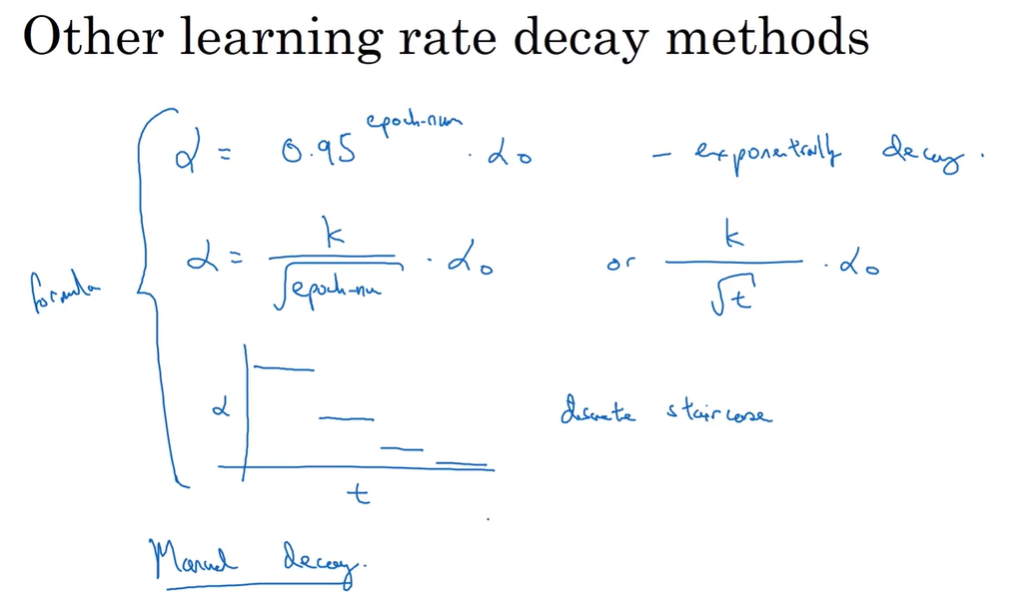 Other learning rate decay methods
α = 0.95^epoch-num · α₀ - exponentially decay.
α = k/√epoch-nu · α₀ or k/√t · α₀
formula
α discrete staircase
t
Manual decay.